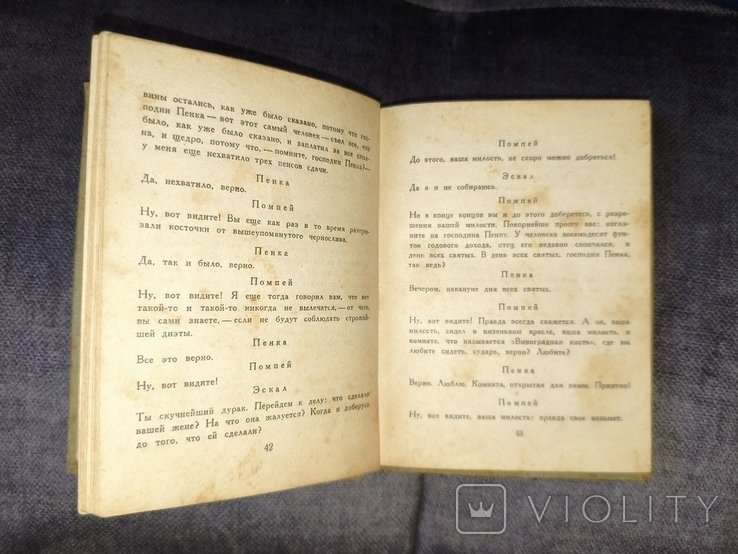 вины остались, как уже было сказано, потому что гос-
подин Пенка — вот этот самый человек — съел все, что
было, как уже было сказано, и заплатил за все спол-
на, и щедро, потому что, — помните, господин Пенка? —
у меня еще нехватило трех пенсов сдачи.
Пенка
Да, нехватило, верно.
Помпей
Ну, вот видите! Вы еще как раз в то время разгры-
зали косточки от вышеупомянутого чернослива.
Пенка
Да, так и было, верно.
Помпей
Ну, вот видите! Я еще тогда говорил вам, что вот
такой-то и такой-то никогда не вылечатся, — от чего,
вы сами знаете, — если не будут соблюдать строжай-
шей диэты.
Пенка
Все это верно.
Помпей
Ну, вот видите!
Эскал
Ты скучнейший дурак. Перейдем к делу: что сделали
вашей жене? На что она жалуется? Когда я доберусь
до того, что ей сделали?
42
Помпей
До этого, ваша милость, не скоро можно добраться!
Эскал
Да я и не собираюсь.
Помпей
Но в конце концов вы и до этого доберетесь, с разре-
шения вашей милости. Покорнейше прошу вас: взгля-
ните на господина Пенку. У человека восемьдесят фун-
тов годового дохода, отец его недавно скончался, в
день всех святых. В день всех святых, господин Пенка,
так ведь?
Пенка
Вечером, накануне дня всех святых.
Помпей
Ну, вот видите! Правда всегда скажется. А он, ваша
милость, сидел в низеньком кресле, ваша милость, в
комнате, что называется «Виноградная кисть», где вы
любите сидеть, сударь, верно? Любите?
Пенка
Верно. Люблю. Комната, открытая для зимы. Приятно!
Помпей
Ну, вот видите, ваша милость: правда свое возьмет.
43
VIOLITY